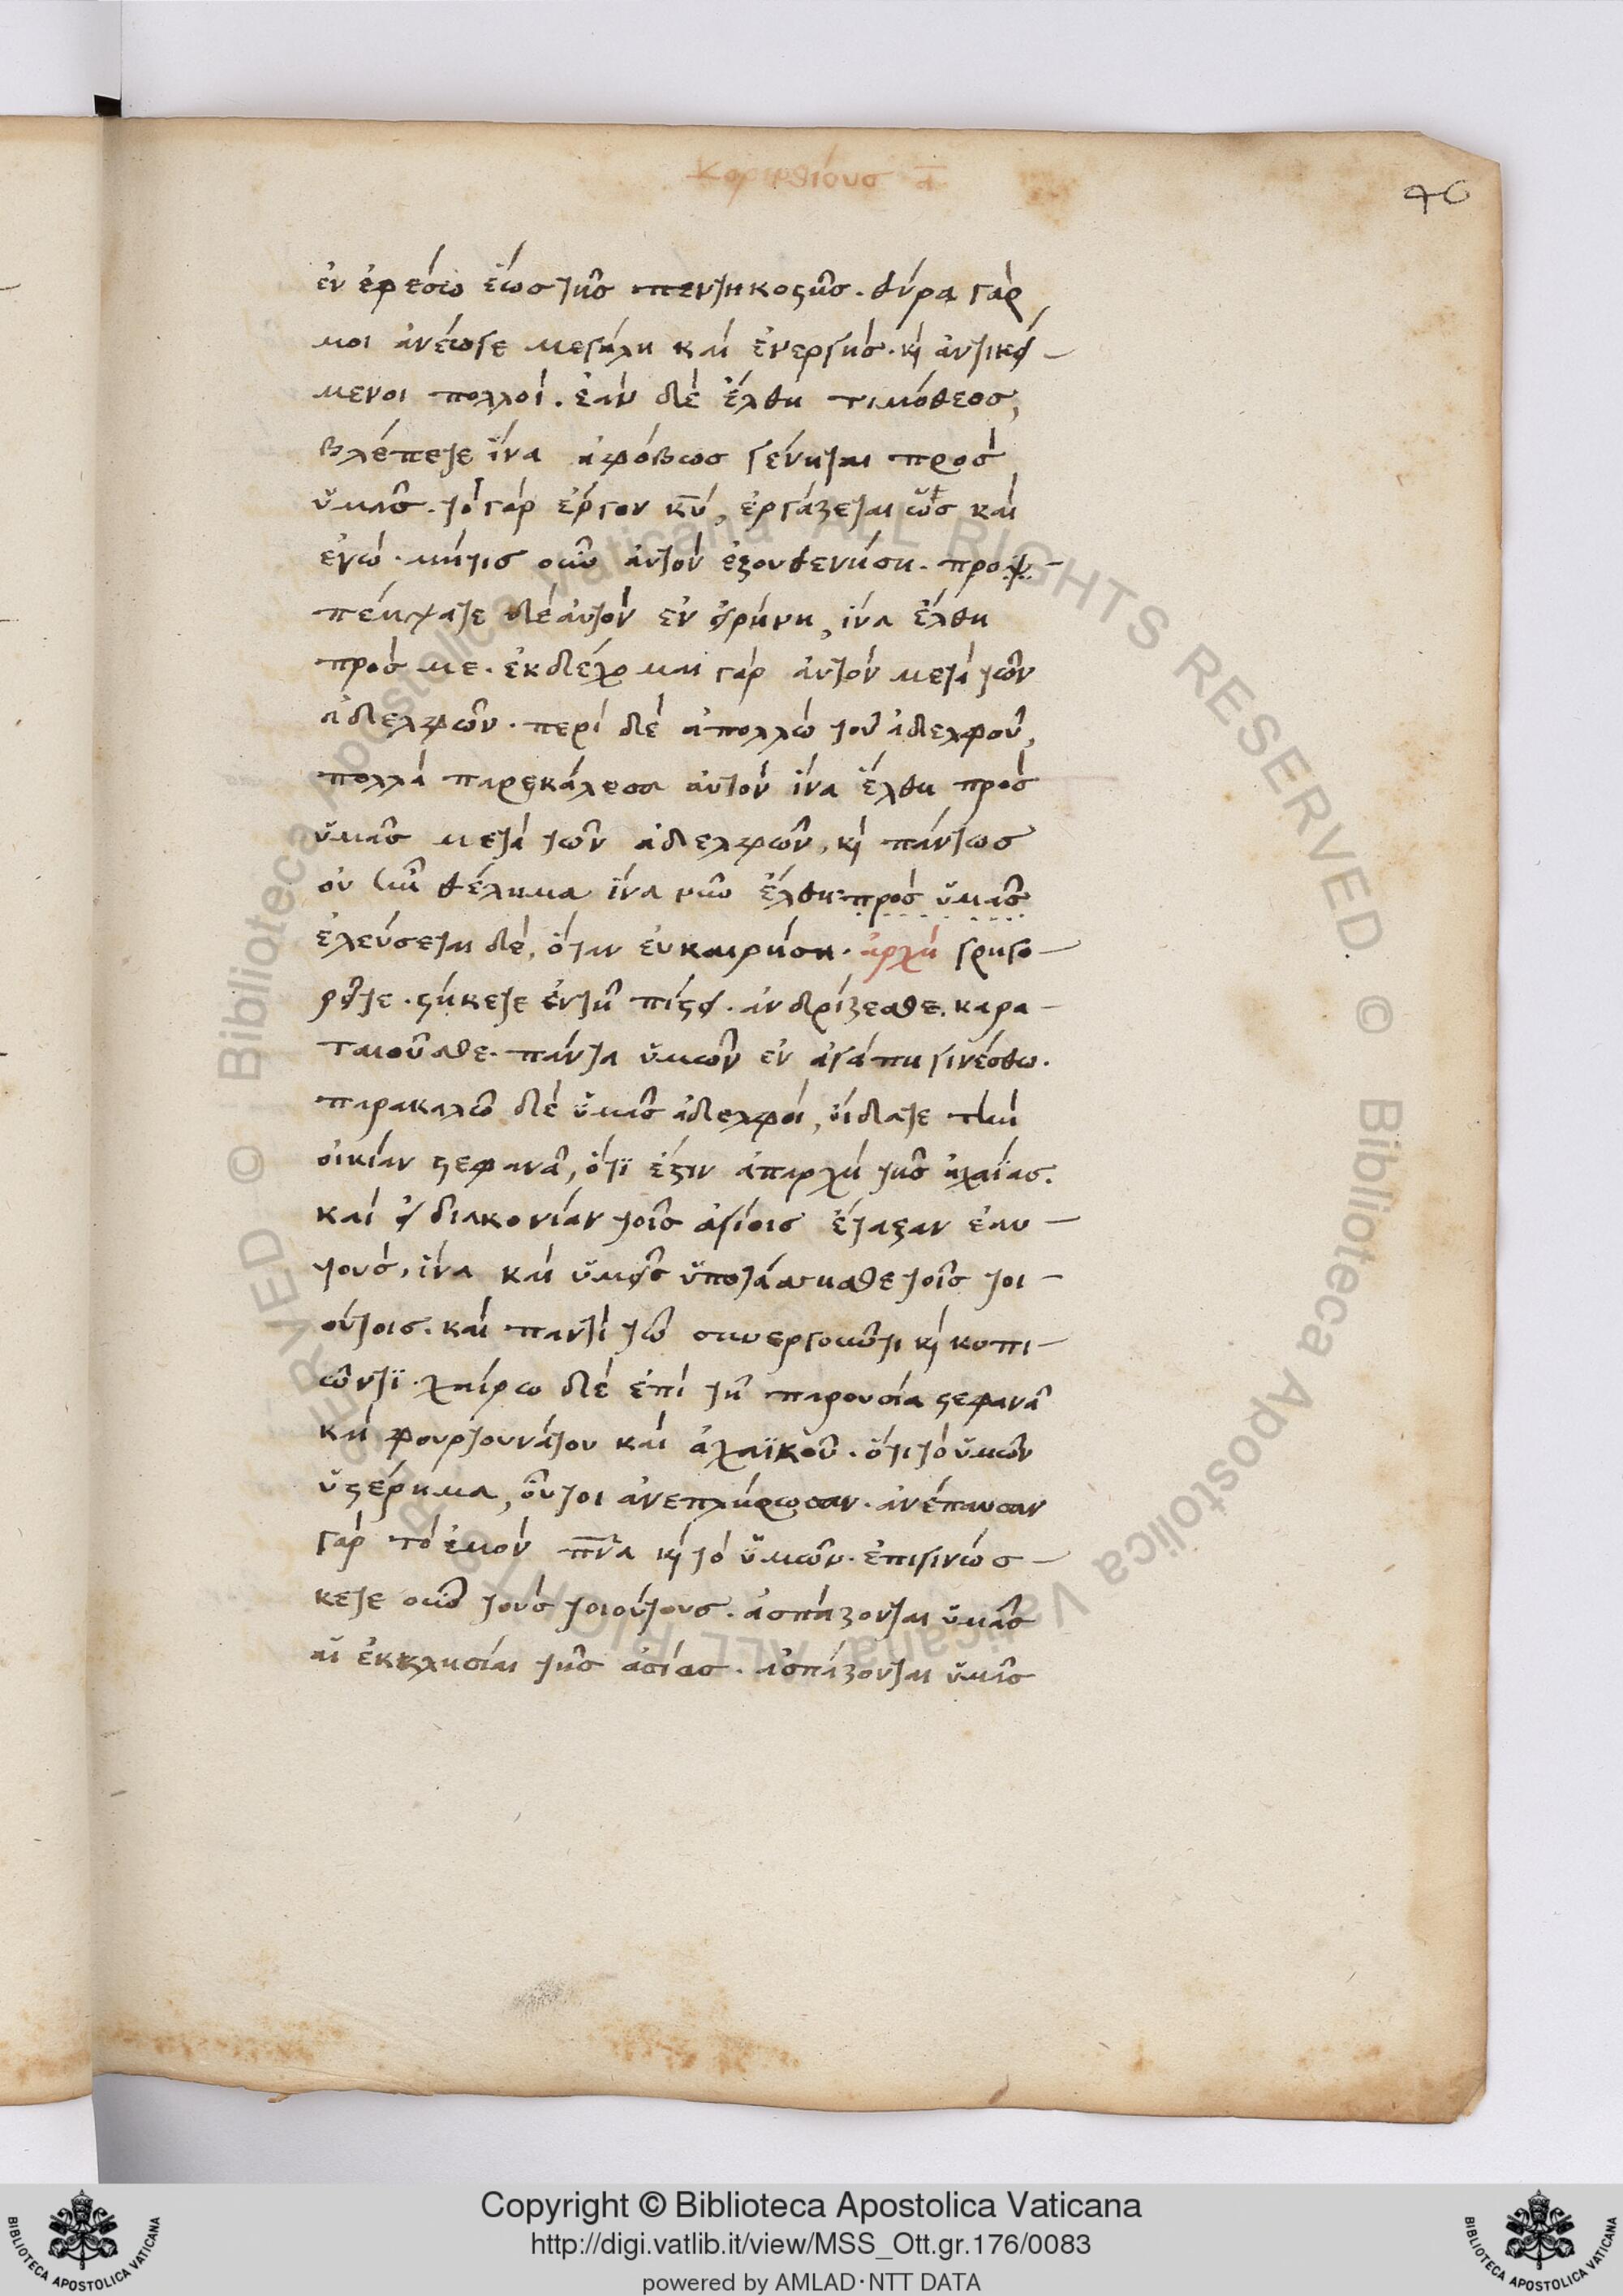 Κορινθίους α
40
ἐν ἐφέσω ἕως τῆς πεντηκοστῆς. θύρα γάρ
μοι ἀνέωγε μεγάλη καὶ ἐνεργής. κ(αὶ) ἀντικεί-
μενοι πολλοί. ἐὰν δὲ ἔλθη τιμόθεος,
βλέπετε ἵνα ἀφόβως γένηται πρὸς
ὑμᾶς. τὸ γὰρ ἔργον κυ, ἐργάζεται ὡς καὶ
ἐγώ. μήτις οὖν αὐτὸν ἐξουθενήση. προψ-
πέμψατε δὲ αὐτὸν ἐν εἰρήνη, ἵνα ἔλθη
πρός με. ἐκδέχομαι γὰρ αὐτὸν μετὰ τῶν
ἀδελφῶν. περὶ δὲ ἀπολλὼ τοῦ ἀδελφοῦ,
πολλὰ παρεκάλεσα αὐτὸν ἵνα ἔλθη πρὸς
ὑμᾶς μετὰ τῶν ἀδελφῶν, κ(αὶ) πάντως
οὐκ ἦν θέλημα ἵνα νῦν ἔλθη πρὸς ὑμᾶς
ἐλεύσεται δὲ, ὅταν εὐκαιρήση. ἀρχὴ γρηγο-
ρεῖτε. στήκετε ἐν τῆ πίστει. ἀνδρίζεσθε. καρα-
ταιοῦσθε. πάντα ὑμῶν ἐν ἀγάπη γινέσθω.
παρακαλῶ δὲ ὑμᾶς ἀδελφοί, οἴδατε τὴν
οἰκίαν στεφανᾶ, ὅτϊ ἐστιν ἀπαρχὴ τῆς ἀχαΐας.
καὶ εἰς διακονίαν τοῖς ἁγίοις ἔταξαν ἑαυ-
τούς, ἵνα καὶ ὑμεῖς ὑποτάσσησθε τοῖς τοι-
ούτοις. καὶ παντὶ τῶ συνεργοῦντι κ(αὶ) κοπι-
ῶντϊ. χαίρω δὲ ἐπὶ τῆ παρουσία στεφανᾶ
καὶ φουρτουνάτου καὶ ἀχαϊκοῦ. ὅτι τὸ ὑμῶν
ὑστέρημα, οὗτοι ἀνεπλήρωσαν. ἀνέπαυσαν
γὰρ τὸ ἐμὸν πνα κ(αὶ) τὸ ὑμῶν. ἐπιγινώσ-
κετε οὖν τοὺς τοιούτους. ἀσπάζονται ὑμᾶς
αἱ ἐκκλησίαι τῆς ἀσίας. ἀσπάζονται ὑμᾶς
Copyright © Biblioteca Apostolica Vaticana
http://digi.vatlib.it/view/MSS_Ott.gr.176/0083
powered by AMLAD·NTT DATA